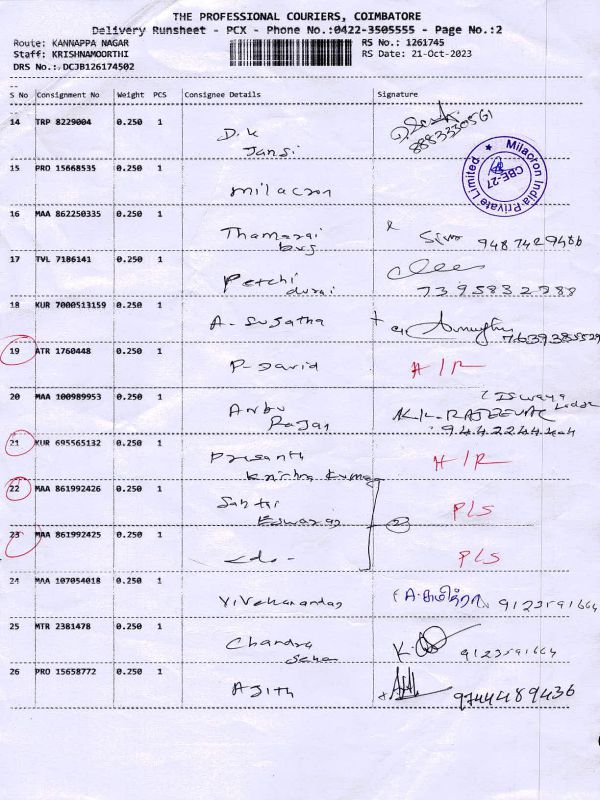 THE PROFESSIONAL COURIERS, COIMBATORE
Delivery Runsheet - PCX - Phone No.:0422-3505555 - Page No.:2
Route: KANNAPPA NAGAR RS No.: 1261745
Staff: KRISHNAMOORTHI RS Date: 21-Oct-2023
DRS No.:DCJB126174502
S No Consignment No Weight PCS Consignee Details Signature
14 TRP 8229004 0.250 1 D.K
Jansi
15 PRO 15668535 0.250 1 milacron
Milacron India Private Limited ★
CBE-27
16 MAA 862250335 0.250 1 Thamarai
9487429486
17 TVL 7186141 0.250 1 Petchi
durai 7395832988
18 KUR 7000513159 0.250 1 A-Sugatha
7639385529
19 ATR 1760448 0.250 1 P-David A/R
20 MAA 100989953 0.250 1 Anbu
Rajan K.K-RAJEEVAC
21 KUR 695565132 0.250 1 Prasanth A/R
Krishna Kumar
22 MAA 861992426 0.250 1 Eswaran P/S
2
23 MAA 861992425 0.250 1 -do- P/S
24 MAA 107054018 0.250 1 Vivekanandan 9123591664
25 MTR 2381478 0.250 1 Chandra K.
9123591664
26 PRO 15658772 0.250 1 Ajith 9744489436